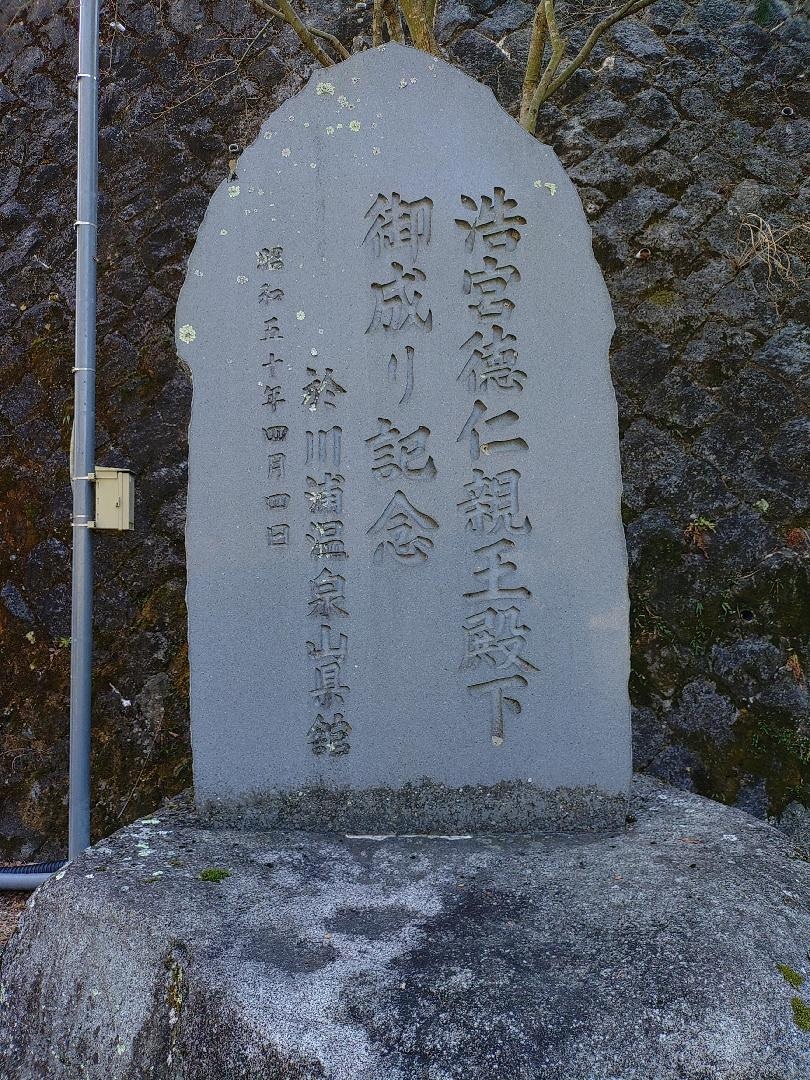 浩宮徳仁親王殿下
御成り記念
於川浦温泉山県舘
昭和五十年四月四日